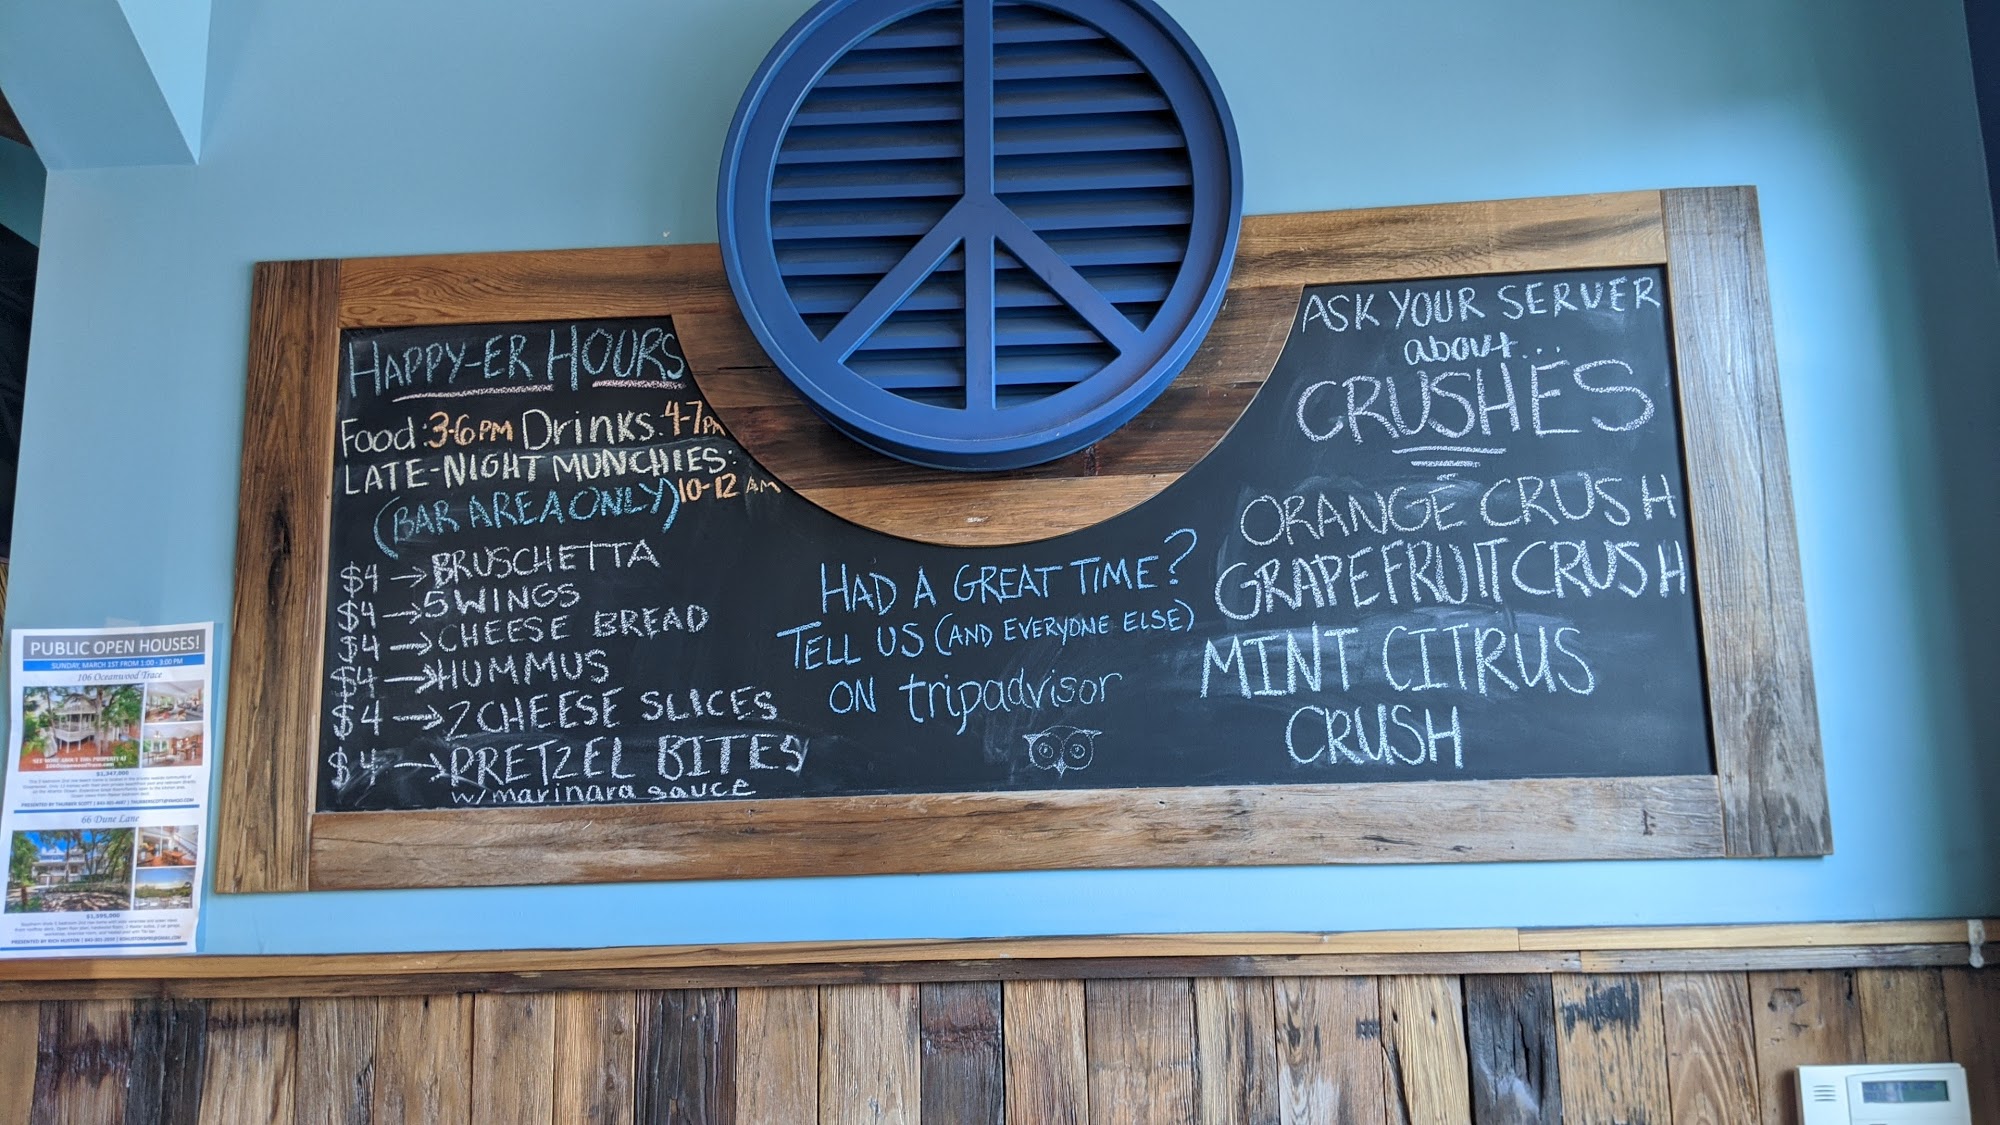 HAPPY-ER HOURS
Food: 3-6PM Drinks: 4-7PM
LATE-NIGHT MUNCHIES:
(BAR AREA ONLY) 10-12 AM
$4 → BRUSCHETTA
$4 → 5 WINGS
$4 → CHEESE BREAD
$4 → HUMMUS
$4 → 2 CHEESE SLICES
$4 → PRETZEL BITES
w/ marinara sauce
HAD A GREAT TIME?
TELL US (AND EVERYONE ELSE)
ON tripadvisor
ASK YOUR SERVER
about...
CRUSHES
ORANGE CRUSH
GRAPEFRUIT CRUSH
MINT CITRUS
CRUSH
PUBLIC OPEN HOUSES!
SUNDAY, MARCH 1ST FROM 1:00 - 3:00 PM
106 Oceanwood Trace
SEE MORE ABOUT THIS PROPERTY AT
106OceanwoodTrace.com
$1,347,000
66 Dune Lane
$1,595,000